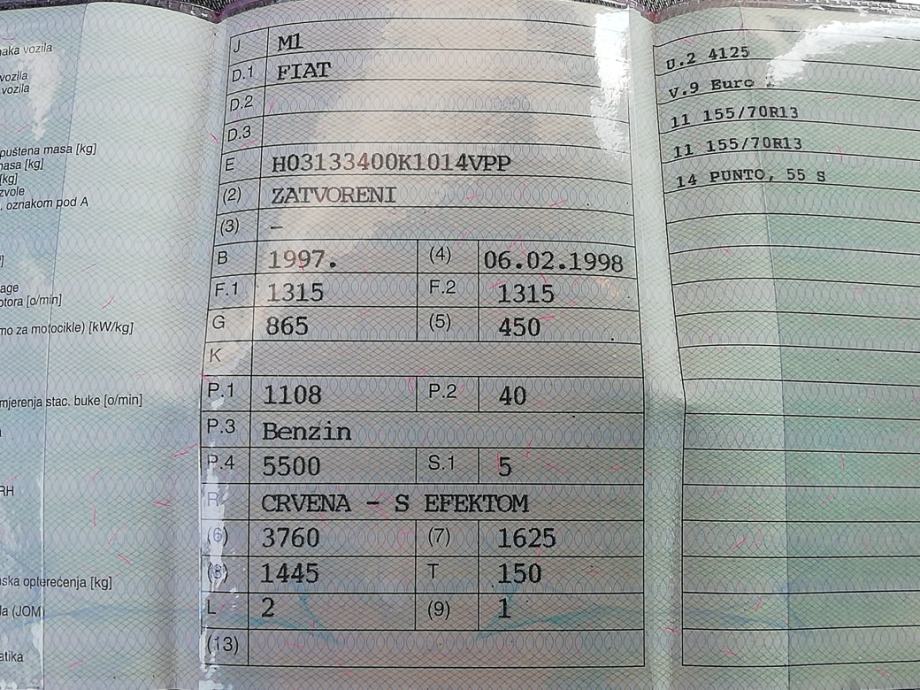 aka vozila
vozila
vozila
puštena masa [kg]
masa [kg]
[kg]
zvole
. oznakom pod A
age
otora [o/min]
mo za motocikle) [kW/kg]
mjerenja stac. buke [o/min]
RH
ska opterećenja [kg]
la (JOM)
atika
J M1
D.1 FIAT
D.2
D.3
E H03133400K1014VPP
(2) ZATVORENI
(3) –
B 1997. (4) 06.02.1998
F.1 1315 F.2 1315
G 865 (5) 450
K
P.1 1108 P.2 40
P.3 Benzin
P.4 5500 S.1 5
R CRVENA - S EFEKTOM
(6) 3760 (7) 1625
(8) 1445 T 150
L 2 (9) 1
(13)
U.2 4125
V.9 Euro
11 155/70R13
11 155/70R13
14 PUNTO, 55 S